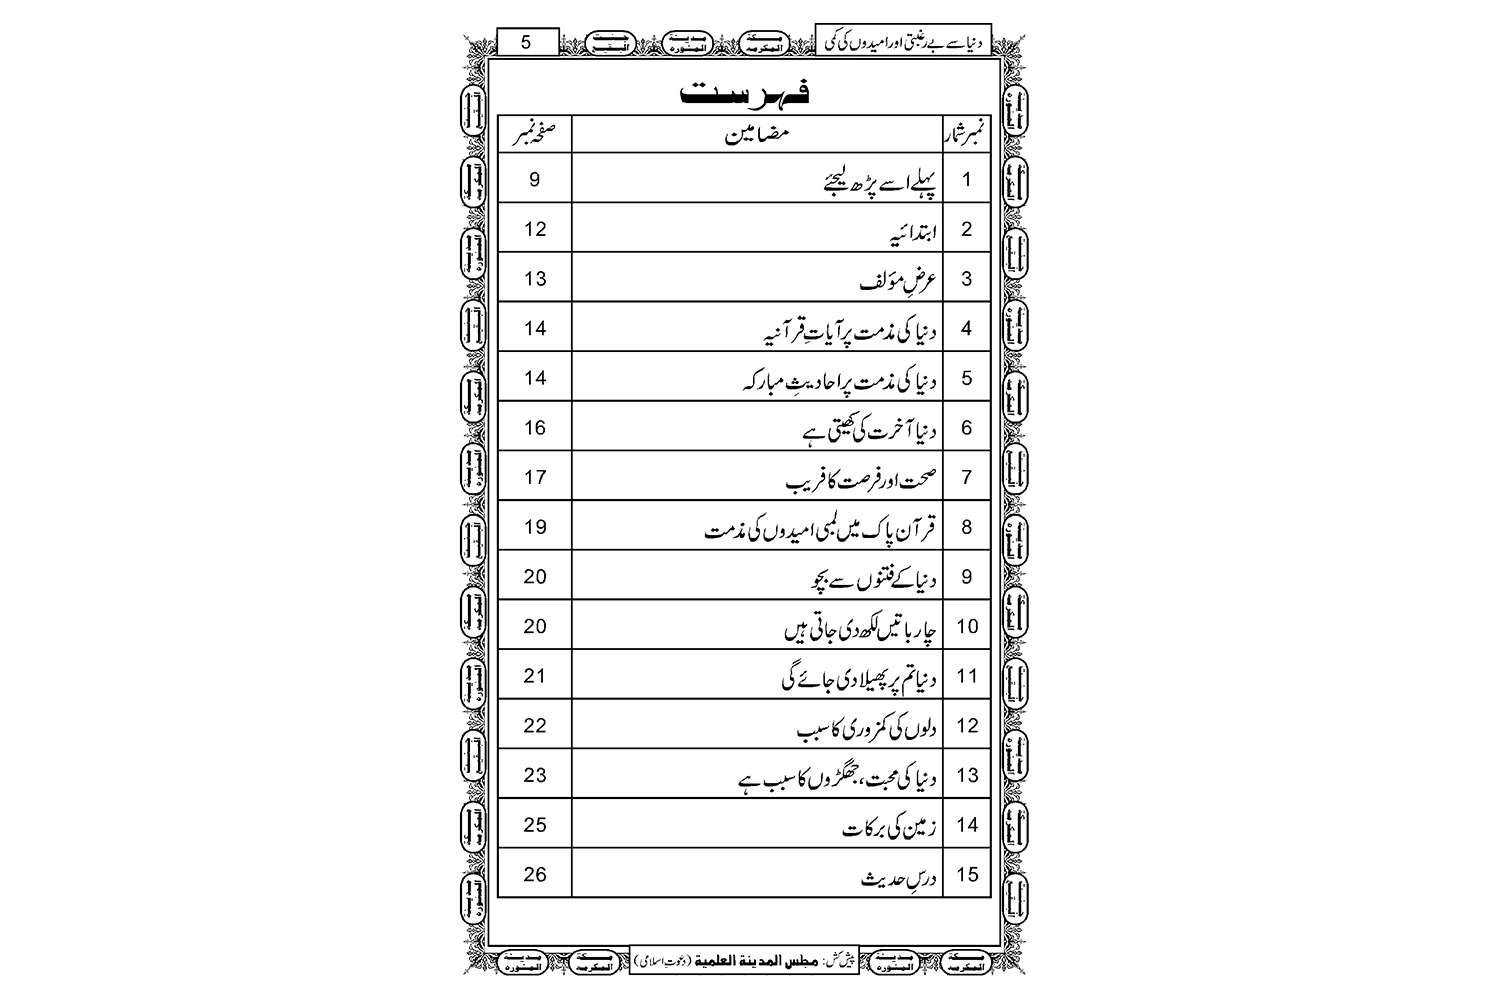 دنیا سے بے رغبتی اور امیدوں کی کمی
مكة المكرمه
مدينة المنوره
جنت البقيع
5
فہرست
نمبر شمار مضامین صفحہ نمبر
1 پہلے اسے پڑھ لیجئے 9
2 ابتدائیہ 12
3 عرضِ مؤلف 13
4 دنیا کی مذمت پر آیاتِ قرآنیہ 14
5 دنیا کی مذمت پر احادیثِ مبارکہ 14
6 دنیا آخرت کی کھیتی ہے 16
7 صحت اور فرصت کا فریب 17
8 قرآن پاک میں لمبی امیدوں کی مذمت 19
9 دنیا کے فتنوں سے بچو 20
10 چار باتیں لکھ دی جاتی ہیں 20
11 دنیا تم پر پھیلا دی جائے گی 21
12 دلوں کی کمزوری کا سبب 22
13 دنیا کی محبت، جھگڑوں کا سبب ہے 23
14 زمین کی برکات 25
15 درسِ حدیث 26
مكة المكرمه
مدينة المنوره
پیش کش: مجلس المدينة العلمية (دعوتِ اسلامی)
مكة المكرمه
مدينة المنوره